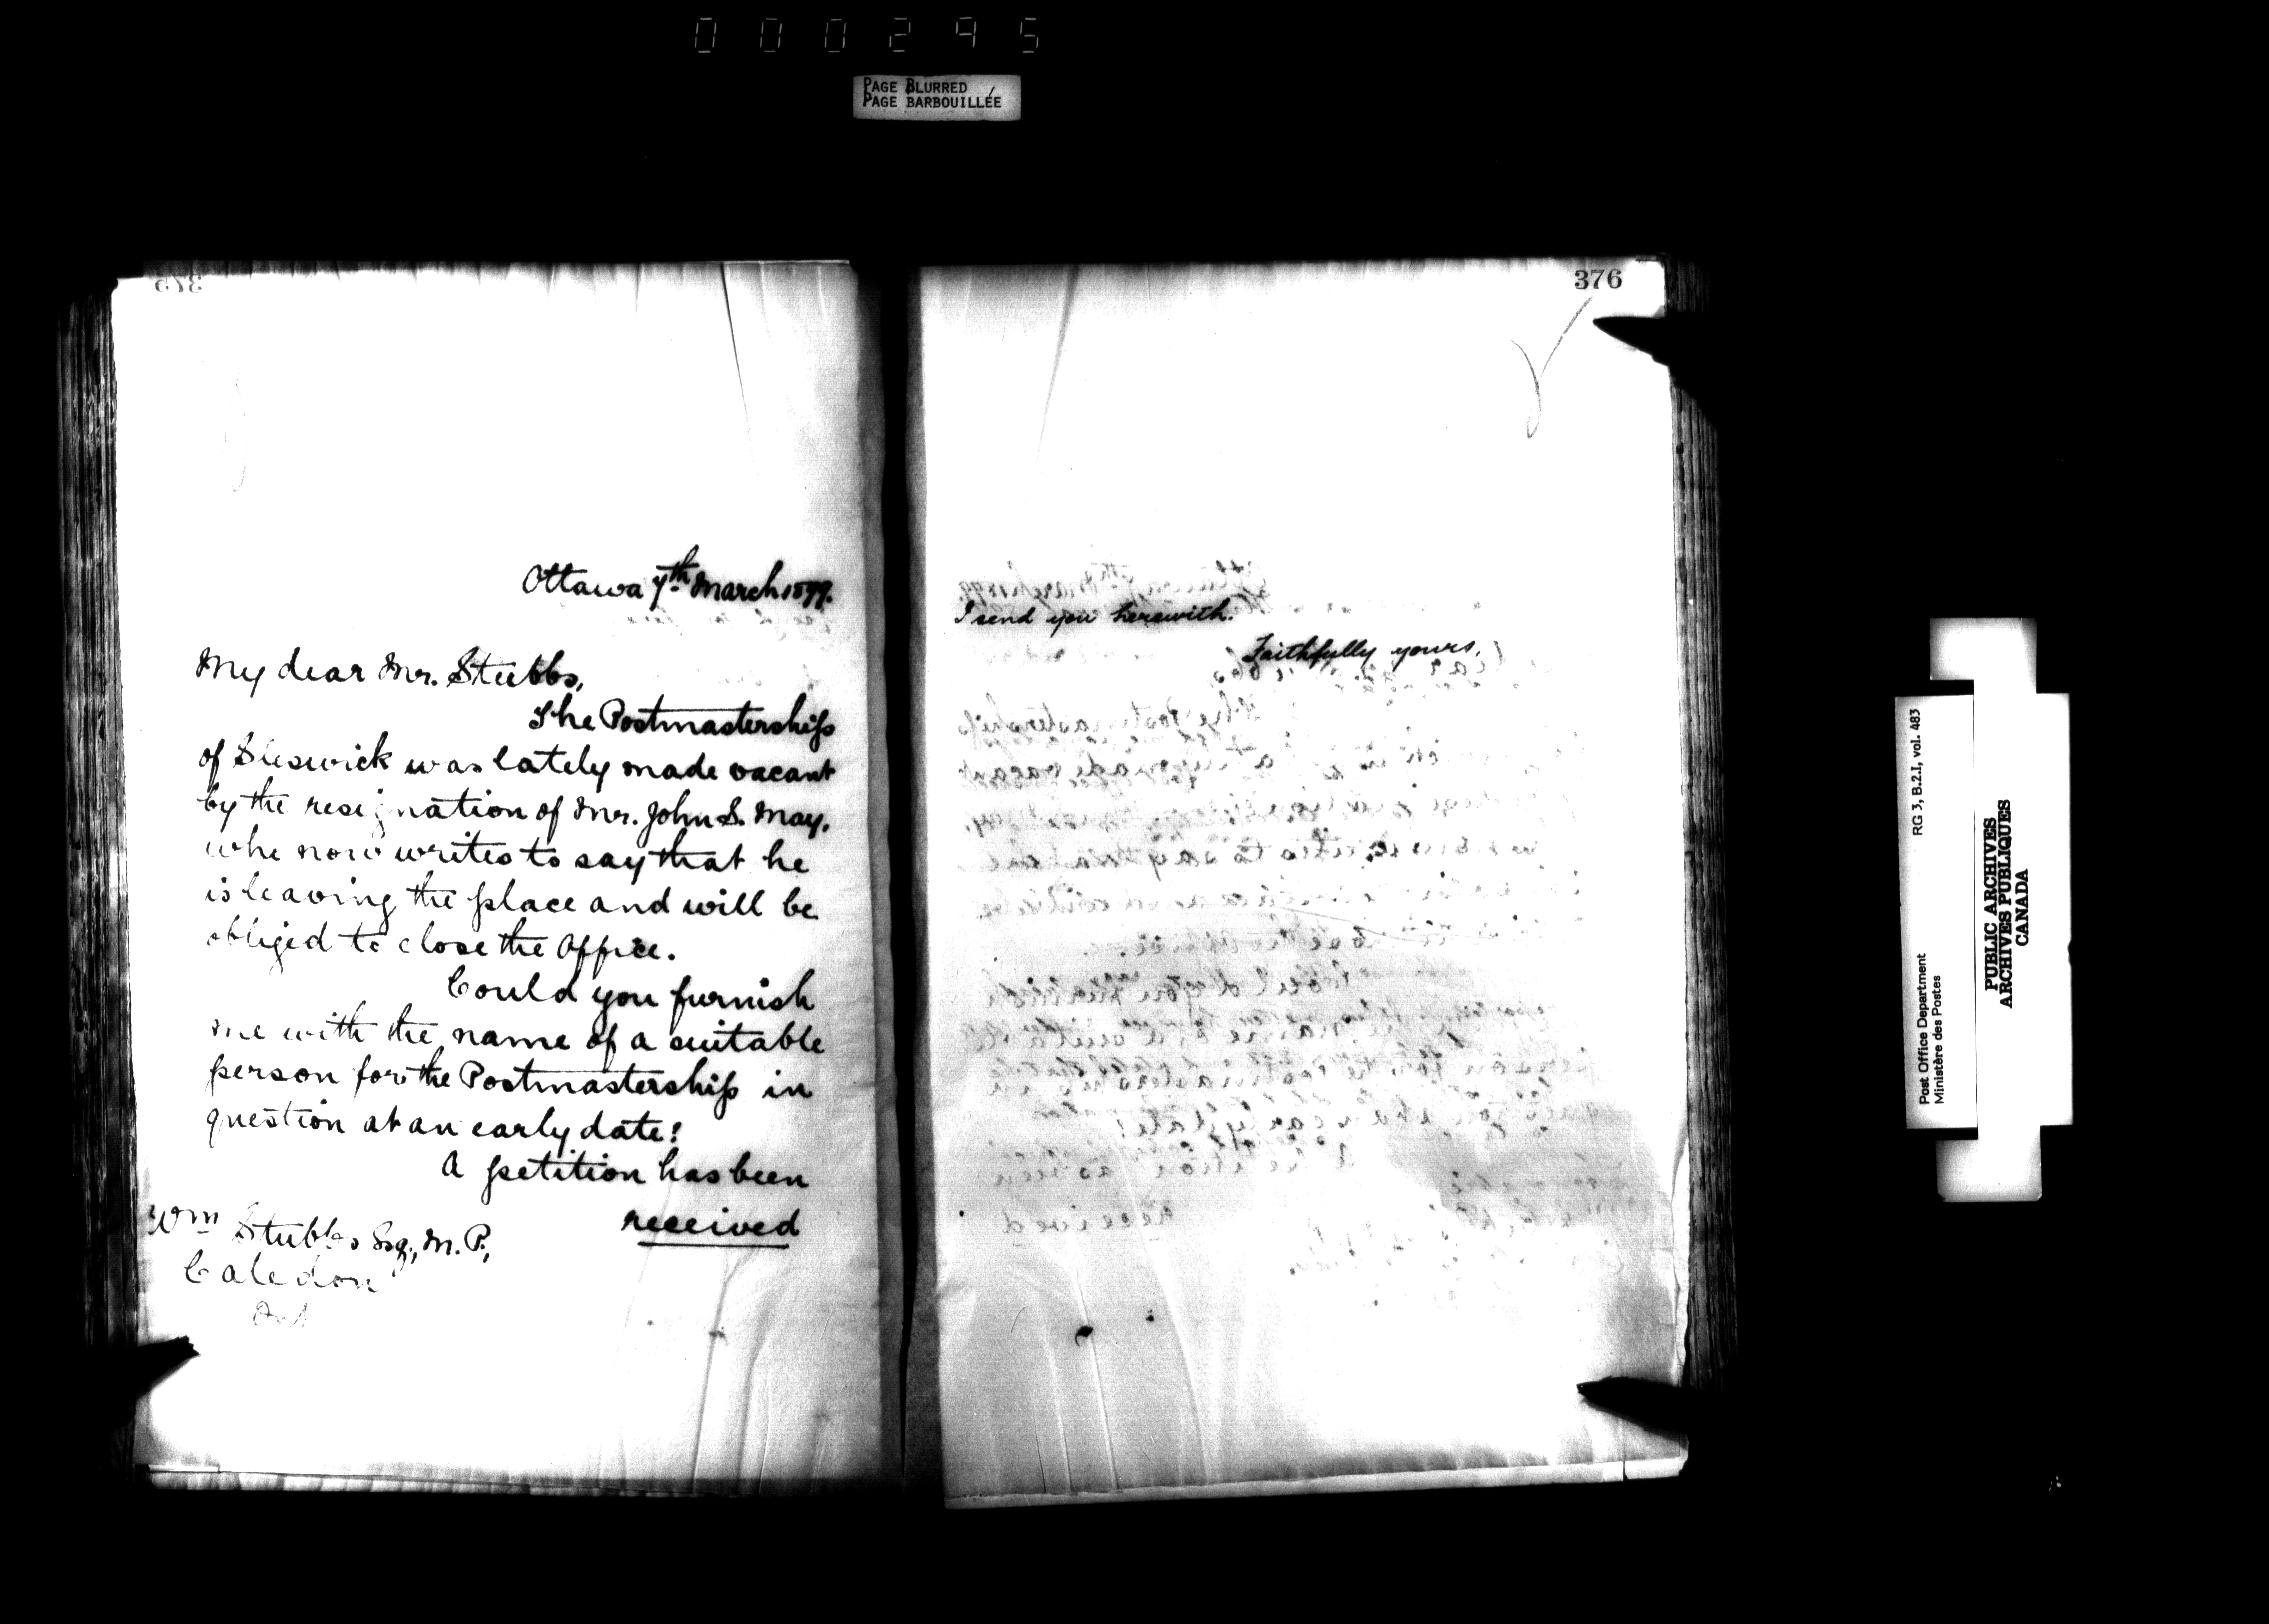 000295
PAGE BLURRED
PAGE BARBOUILLÉE
375
Ottawa 7th March 1899.
My dear Mr. Stubbs,
The Postmastership
of Sleswick was lately made vacant
by the resignation of Mr. John S. May,
who now writes to say that he
is leaving the place and will be
obliged to close the Office.
Could you furnish
me with the name of a suitable
person for the Postmastership in
question at an early date?
A petition has been
received
Wm Stubbs Esq., M.P.,
Caledon
Ont
376
I send you herewith.
Faithfully yours,
RG 3, B.2.I, vol. 483
Post Office Department
Ministère des Postes
PUBLIC ARCHIVES
ARCHIVES PUBLIQUES
CANADA